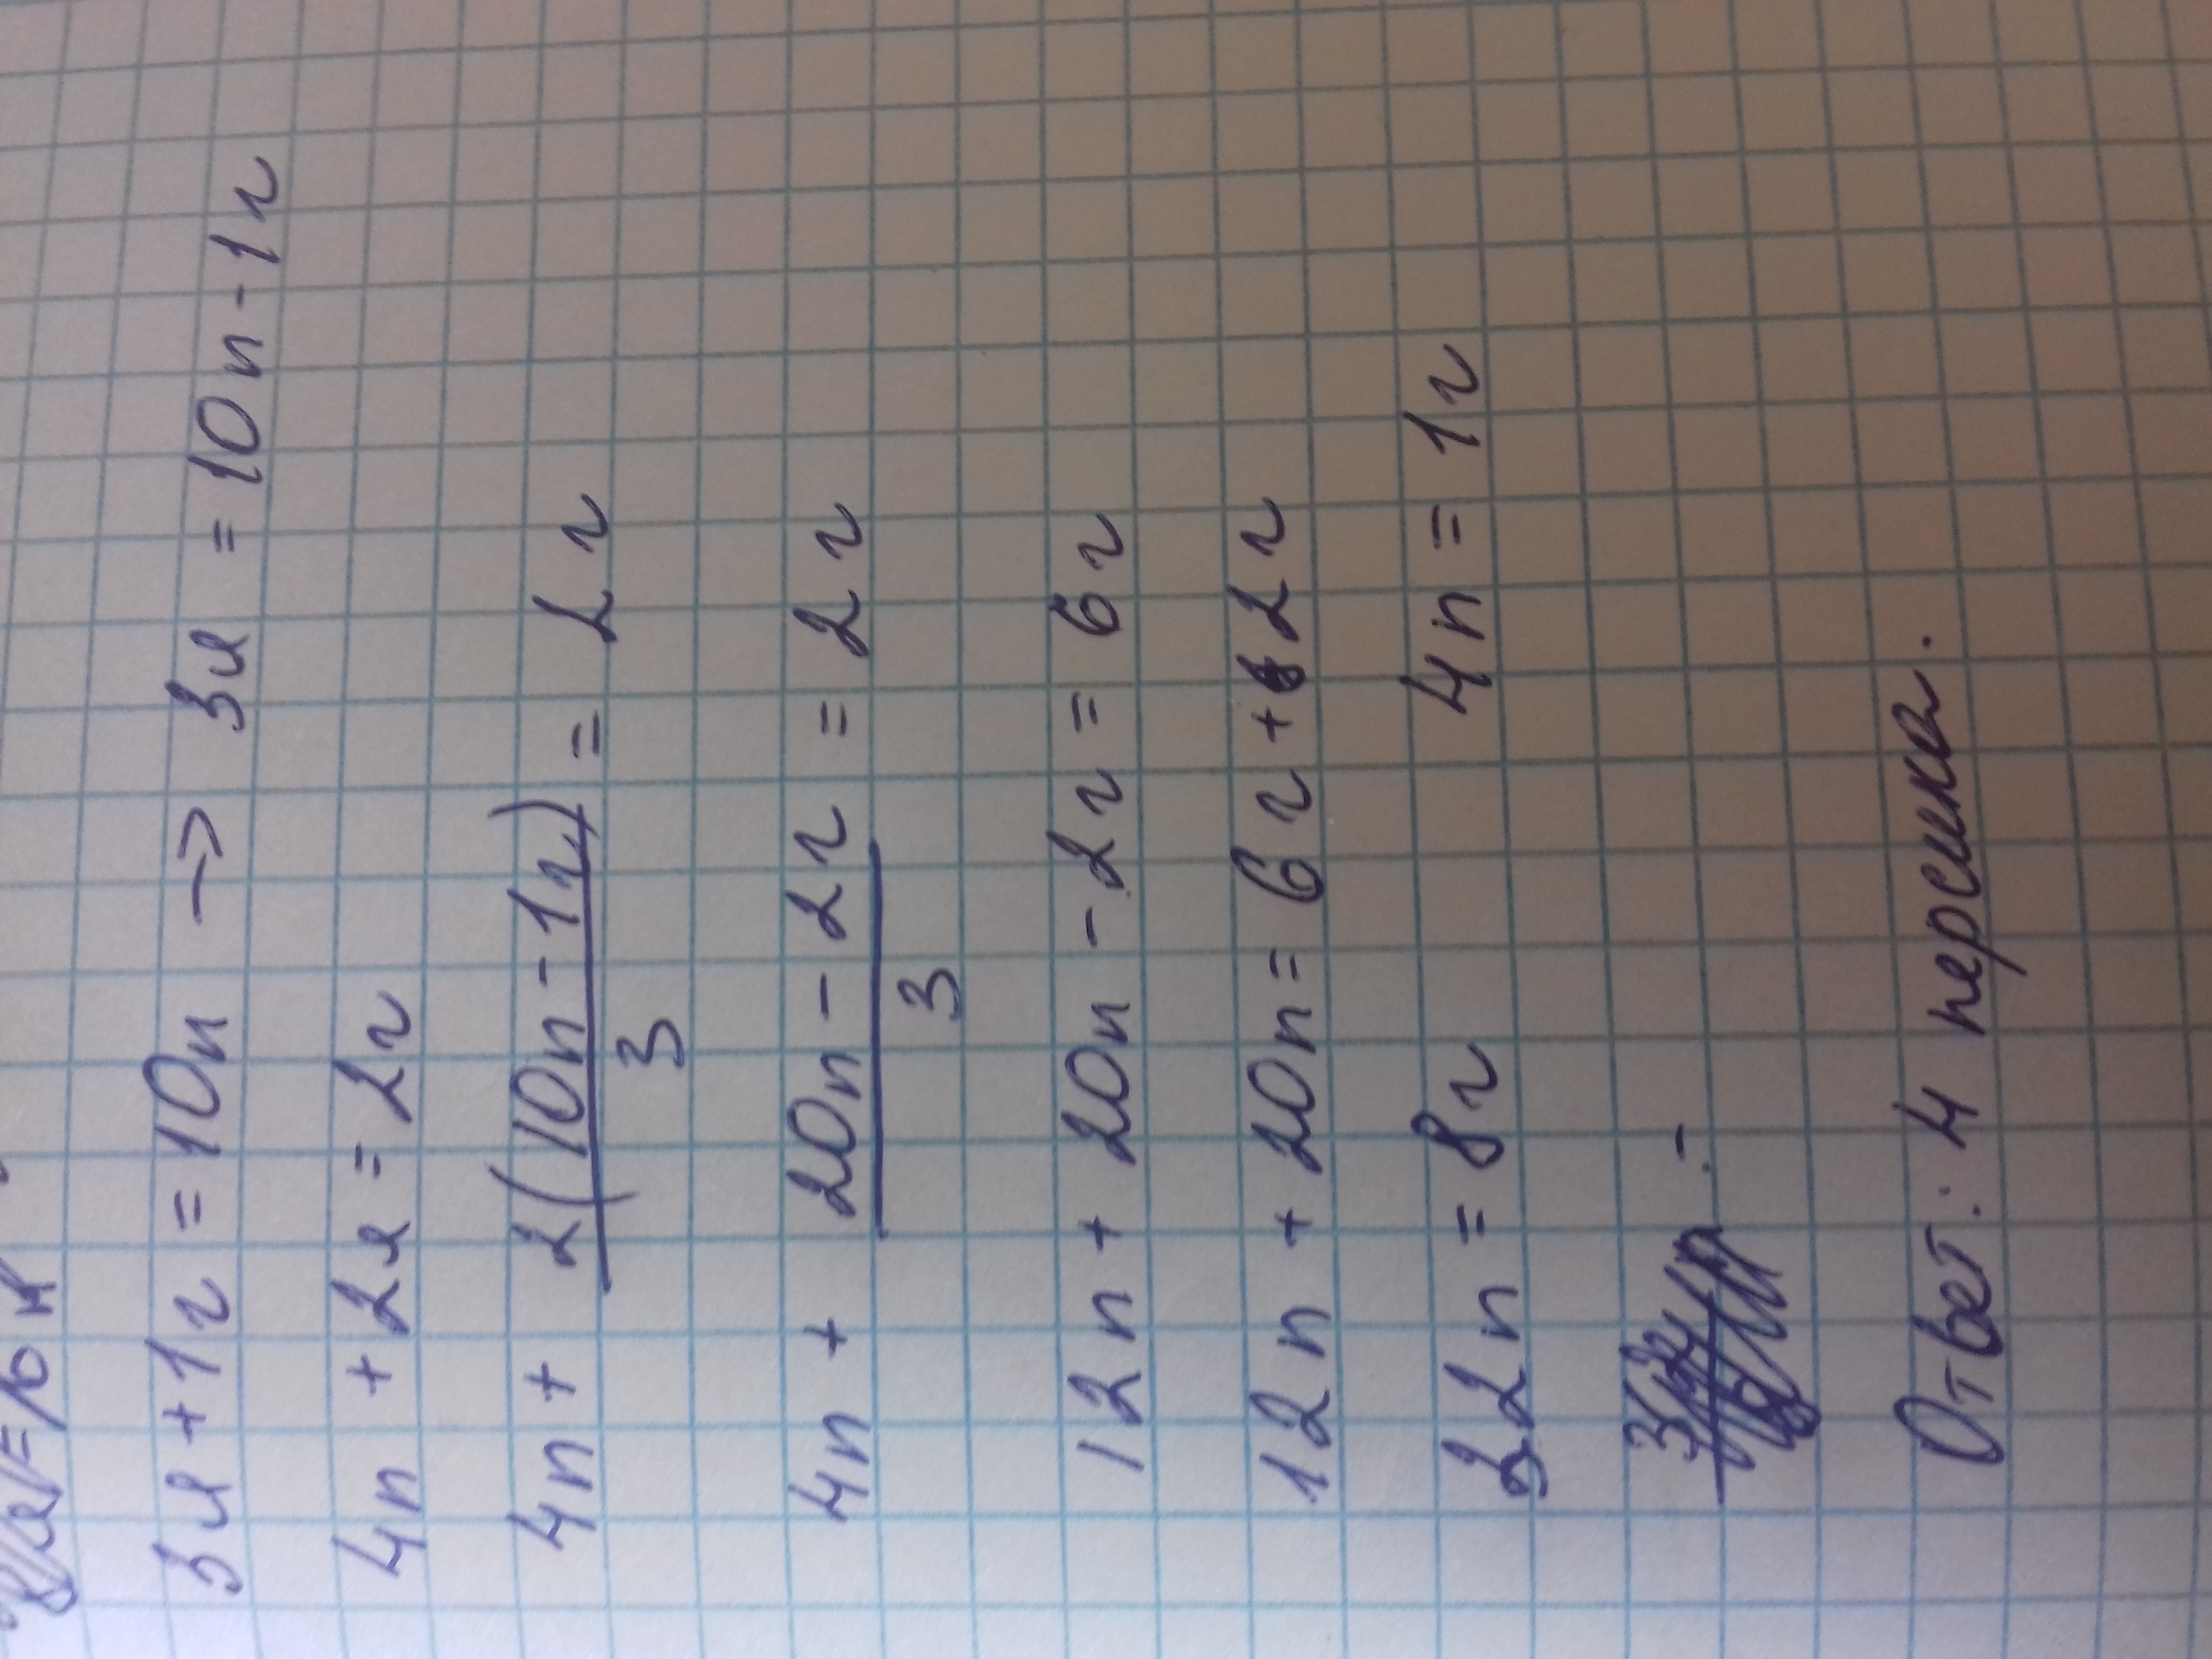 3я + 1г = 10п → 3я = 10п - 1г
4п + 2я = 2г
4п + 2(10п - 1г) = 2г
3
4п + 20п - 2г = 2г
3
12п + 20п - 2г = 6г
12п + 20п = 6г + 2г
32п = 8г 4п = 1г
Ответ: 4 персика.